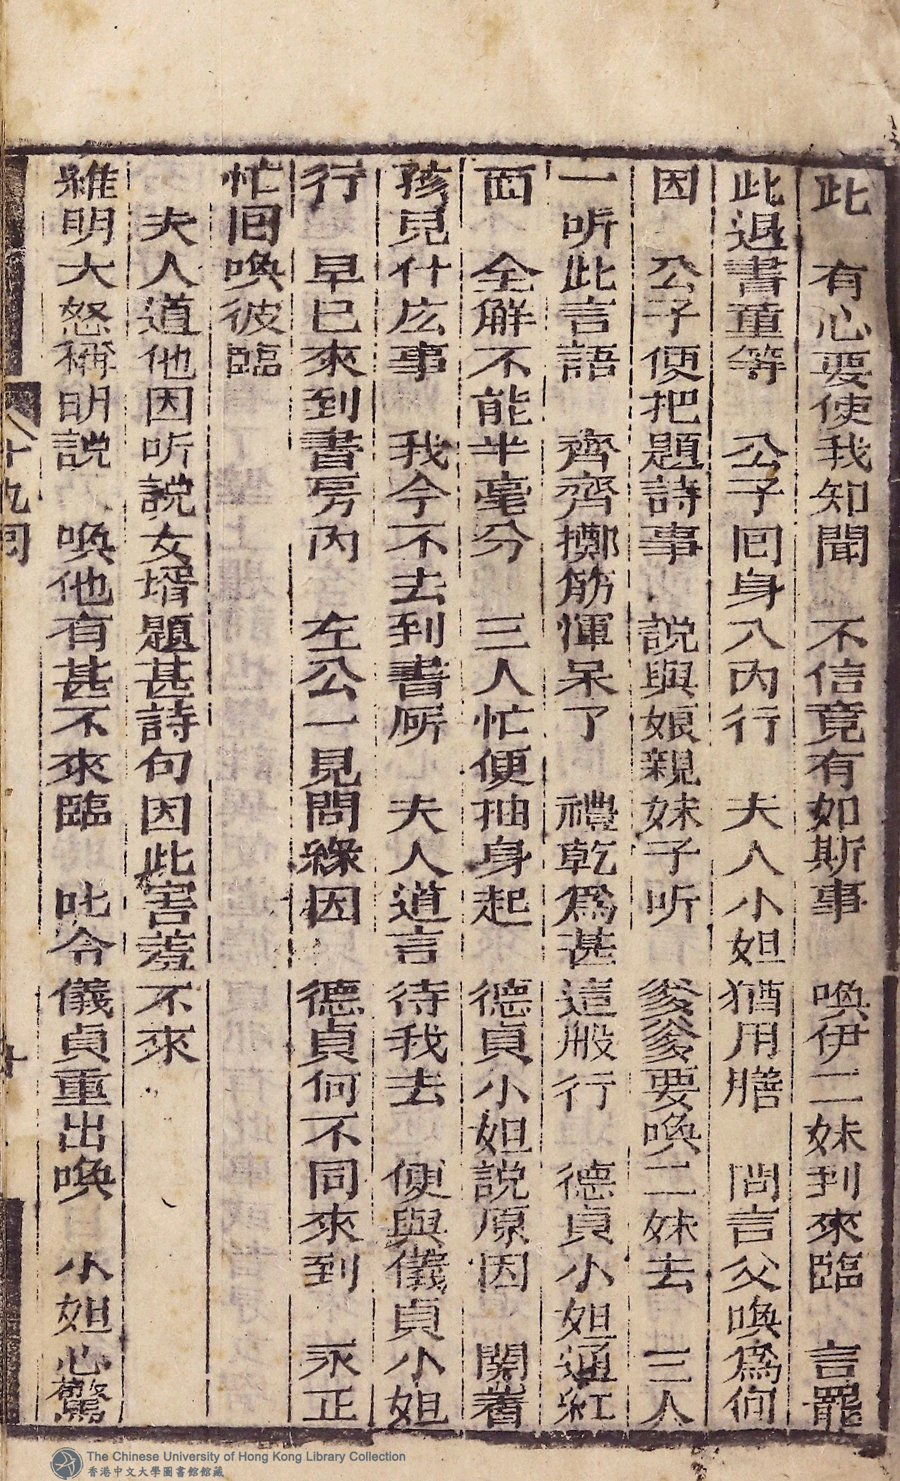 此　有心要使我知聞　不信竟有如斯事　喚伊二妹到來臨　言罷
此退書童等　公子回身入內行　夫人小姐猶用膳　問言父喚為何
因　公子便把題詩事　說與娘親妹子听　爹爹要喚二妹去　三人
一听此言語　齊齊擲筯惲呆了　禮乾為甚這般行　德貞小姐通紅
面　全解不能半毫分　三人忙便抽身起　德貞小姐說原因　関着
孩兒什庅事　我今不去到書𠩄　夫人道言待我去　便與儀貞小姐
行　早已來到書房內　左公一見問緣因　德貞何不同來到　永正
忙回喚彼臨
夫人道他因听說女壻題甚詩句因此害羞不來
維明大怒稱明說　喚他有甚不來臨　叱令儀貞重出喚　小姐心驚
十九回
十
The Chinese University of Hong Kong Library Collection
香港中文大學圖書館館藏